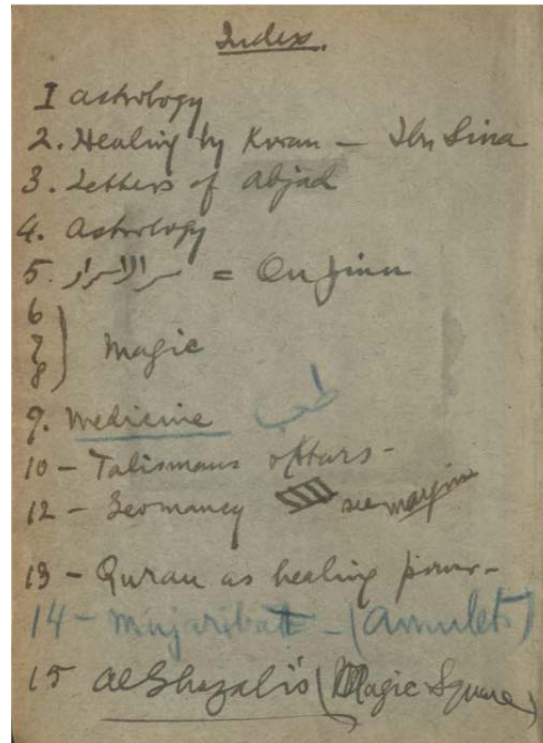 Index.
I astrology
2. Healing by Koran – Ibn Sina
3. Letters of abjad
4. Astrology
5. سر الاسرار = On Jinn
6
7
8
Magic
9. Medicine طب
10 – Talismans of stars –
12 – Geomancy see margin
13 – Quran as healing power –
14 – Mujaribatt – (Amulets)
15 al Ghazali's (Magic Square)